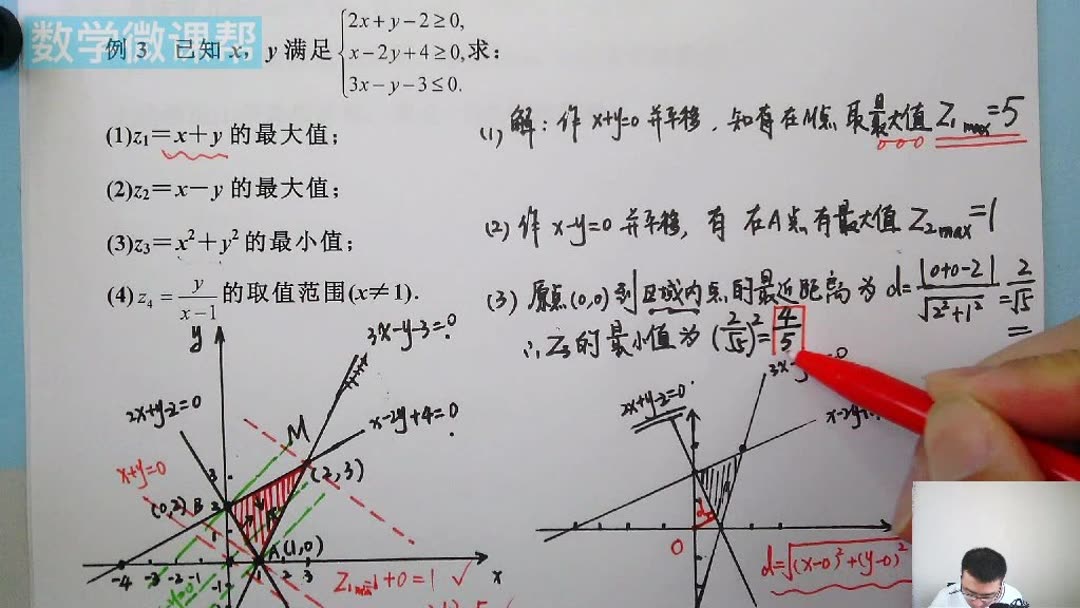 数学微课帮
例 3 已知 x, y 满足 { 2x+y-2≥0, x-2y+4≥0, 3x-y-3≤0. 求:
(1)z₁=x+y 的最大值;
(2)z₂=x-y 的最大值;
(3)z₃=x²+y² 的最小值;
(4)z₄=y/(x-1) 的取值范围(x≠1).
(1) 解: 作 x+y=0 并平移, 知有在M点 取最大值 Z₁max=5
(2) 作 x-y=0 并平移, 有 在A点有最大值 Z₂max=1
(3) 原点(0,0)到区域内点的最近距离为 d=|0+0-2|/√(2²+1²)=2/√5
=
∴ Z₃的最小值为 (2/√5)²=4/5
y
3x-y-3=0
2x+y-2=0
x-2y+4=0
M
(2,3)
x+y=0
3
(0,2) B
2
1
A(1,0)
-4 -3 -2 -1 1 2 3 x
-1
Z₁
+0=1 ✓
2x+y-2=0
d
0
d=√(x-0)²+(y-0)²